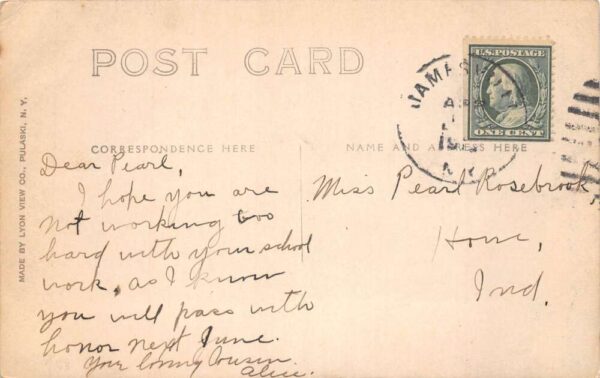 POST CARD
U.S. POSTAGE
ONE CENT
APR
N.Y.
CORRESPONDENCE HERE
NAME AND ADDRESS HERE
Dear Pearl,
I hope you are
not working too
hard with your school
work, as I know
you will pass with
honor next June.
Your loving Cousin
Alice.
Miss Pearl Rosebrook
Howe,
Ind.
MADE BY LYON VIEW CO., PULASKI, N. Y.